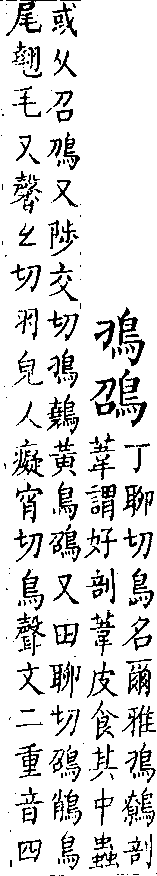 鳭䳂
丁聊切鳥名爾雅鳭鷯剖
葦謂好剖葦皮食其中蟲
或从召䳂又陟交切鳭鷯黃鳥䳂又田聊切䳂鳥
尾翹毛又馨幺切羽皃人癡宵切鳥聲文二重音四